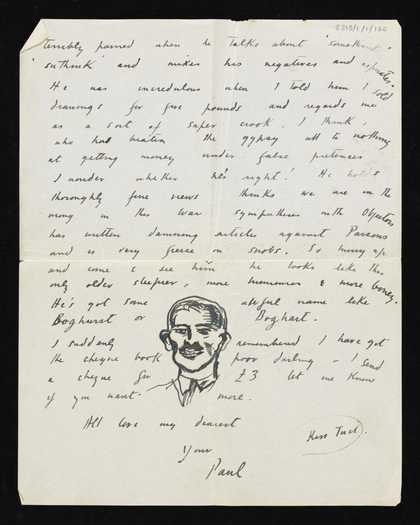 terribly pained when he talks about "somethink"
"nuthink" and mixes his negatives and
He was incredulous when I told him I sold
drawings for five pounds and regards me
as a sort of super crook. I think,
who had beaten the gypsy all to nothing
at getting money under false pretences
I wonder whether he's right! He holds
thoroughly fine views thinks we are in the
wrong in this War sympathises with Objectors
has written damning articles against Parsons
and is very fierce on snobs. So hurry up
and come & see him he looks like this
only older sleepier, more humorous & more boney.
He's got some awful name like
Boghurst or Doghart.
I suddenly remembered I have got
the cheque book poor darling – I send
a cheque for £3 let me know
if you want more.
All love my dearest
Your
Paul
Kiss Tuct.